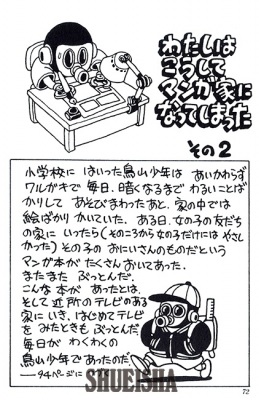 わたしは
こうして
マンガ家に
なってしまった
その2
小学校に はいった鳥山少年は あいかわらず
ワルガキで 毎日、暗くなるまで わるいことば
かりして あそびまわったあと、家の中では
絵ばかり かいていた。 ある日、女の子の友だち
の家に いったら(そのころから女の子だけには やさし
かった)その子の おにいさんのものだという
マンガ本が たくさん おいてあった。
またまた ぶっとんだ。
こんな 本が あったとは。
そして 近所の テレビのある
家に いき、はじめてテレビ
を みたときも ぶっとんだ。
毎日が わくわくの
鳥山少年であったのだ。
——94ページに つづく
72
SHUEISHA